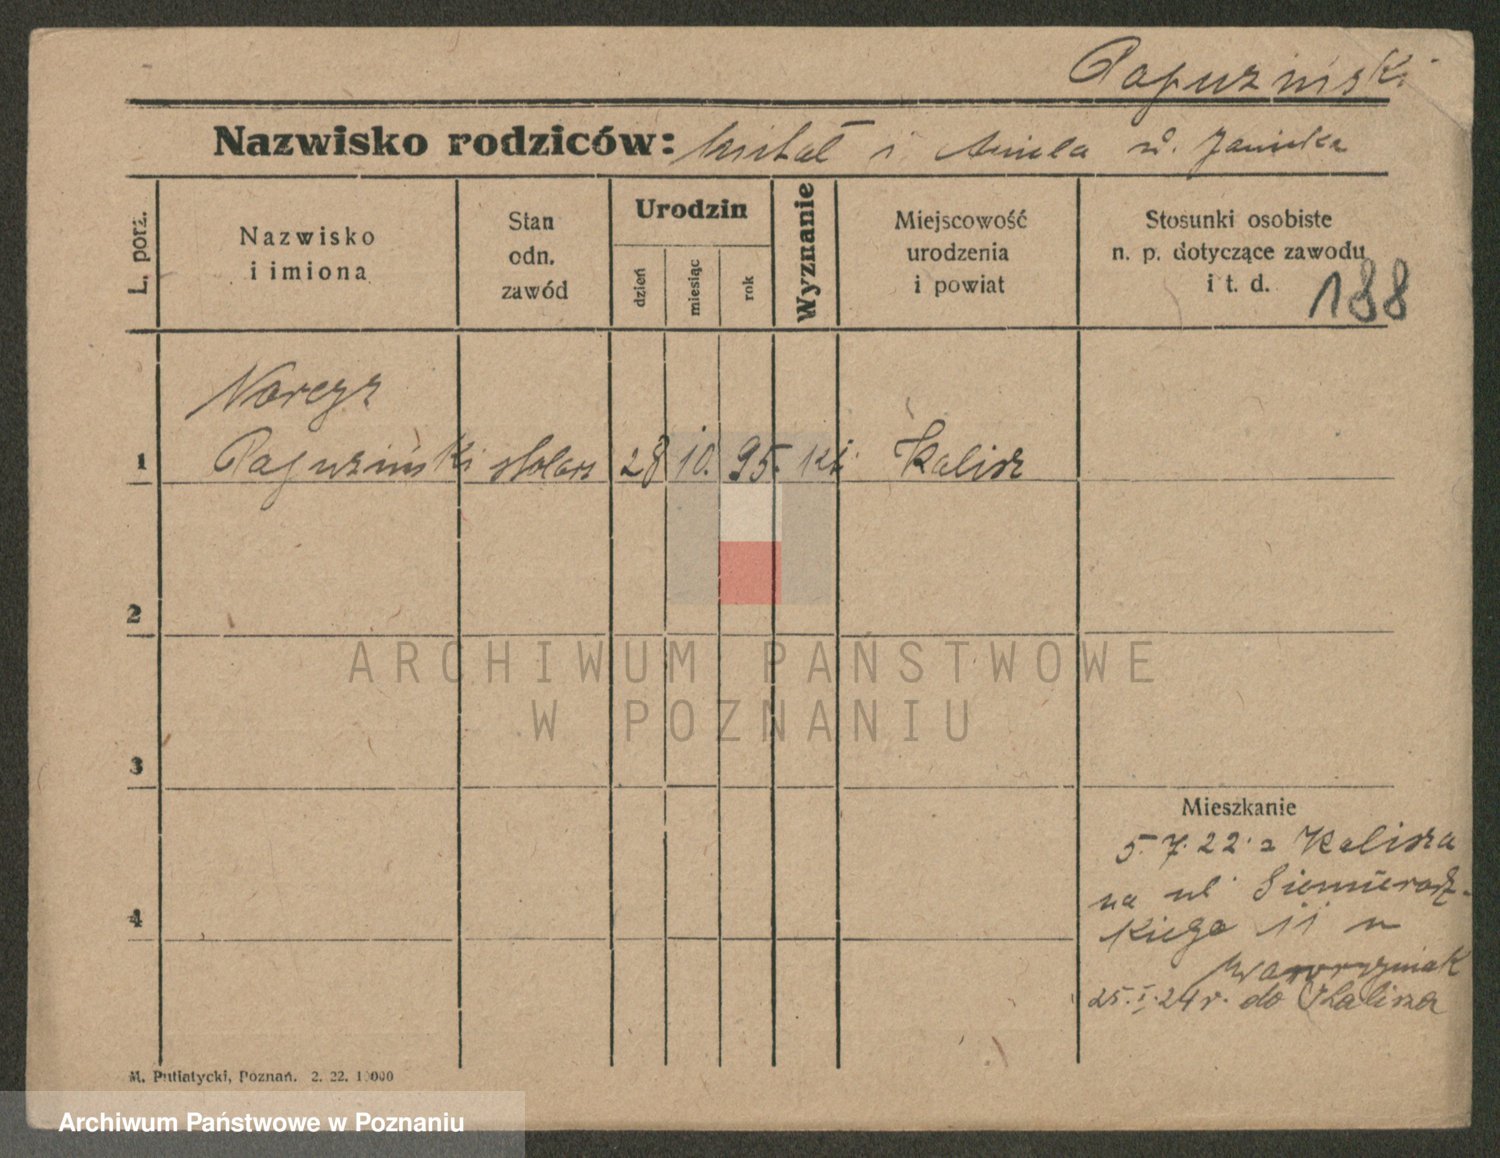 Papuziński
Nazwisko rodziców: Michał i Aniela u. Janicka
L. porz.
Nazwisko
i imiona
Stan
odn.
zawód
Urodzin
dzień
miesiąc
rok
Wyznanie
Miejscowość
urodzenia
i powiat
Stosunki osobiste
n. p. dotyczące zawodu
i t. d.
188
Narcyz
1 Papuziński stolarz 28 10. 95. kt. Kalisz
2
3
4
ARCHIWUM PAŃSTWOWE
W POZNANIU
Mieszkanie
5.7.22. z Kalisza
na ul. Siemieradz-
kiego 11 u
Wawrzyniak
25.I.24 r. do Kalisza
M. Putiatycki, Poznań. 2. 22. 10000
Archiwum Państwowe w Poznaniu